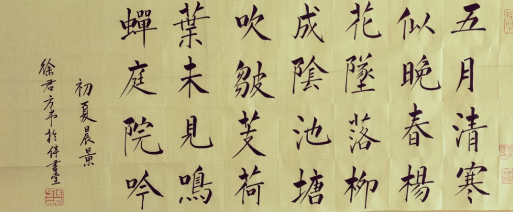 五月清寒
似晚春楊
花墜落柳
成陰池塘
吹皺芰荷
葉未見鳴
蟬庭院吟
初夏晨景
徐君方書於